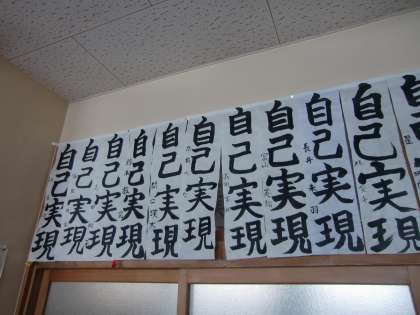 自己実現
自己実現
自己実現
自己実現
自己実現
自己実現
自己実現
自己実現
自己実現
自己実現